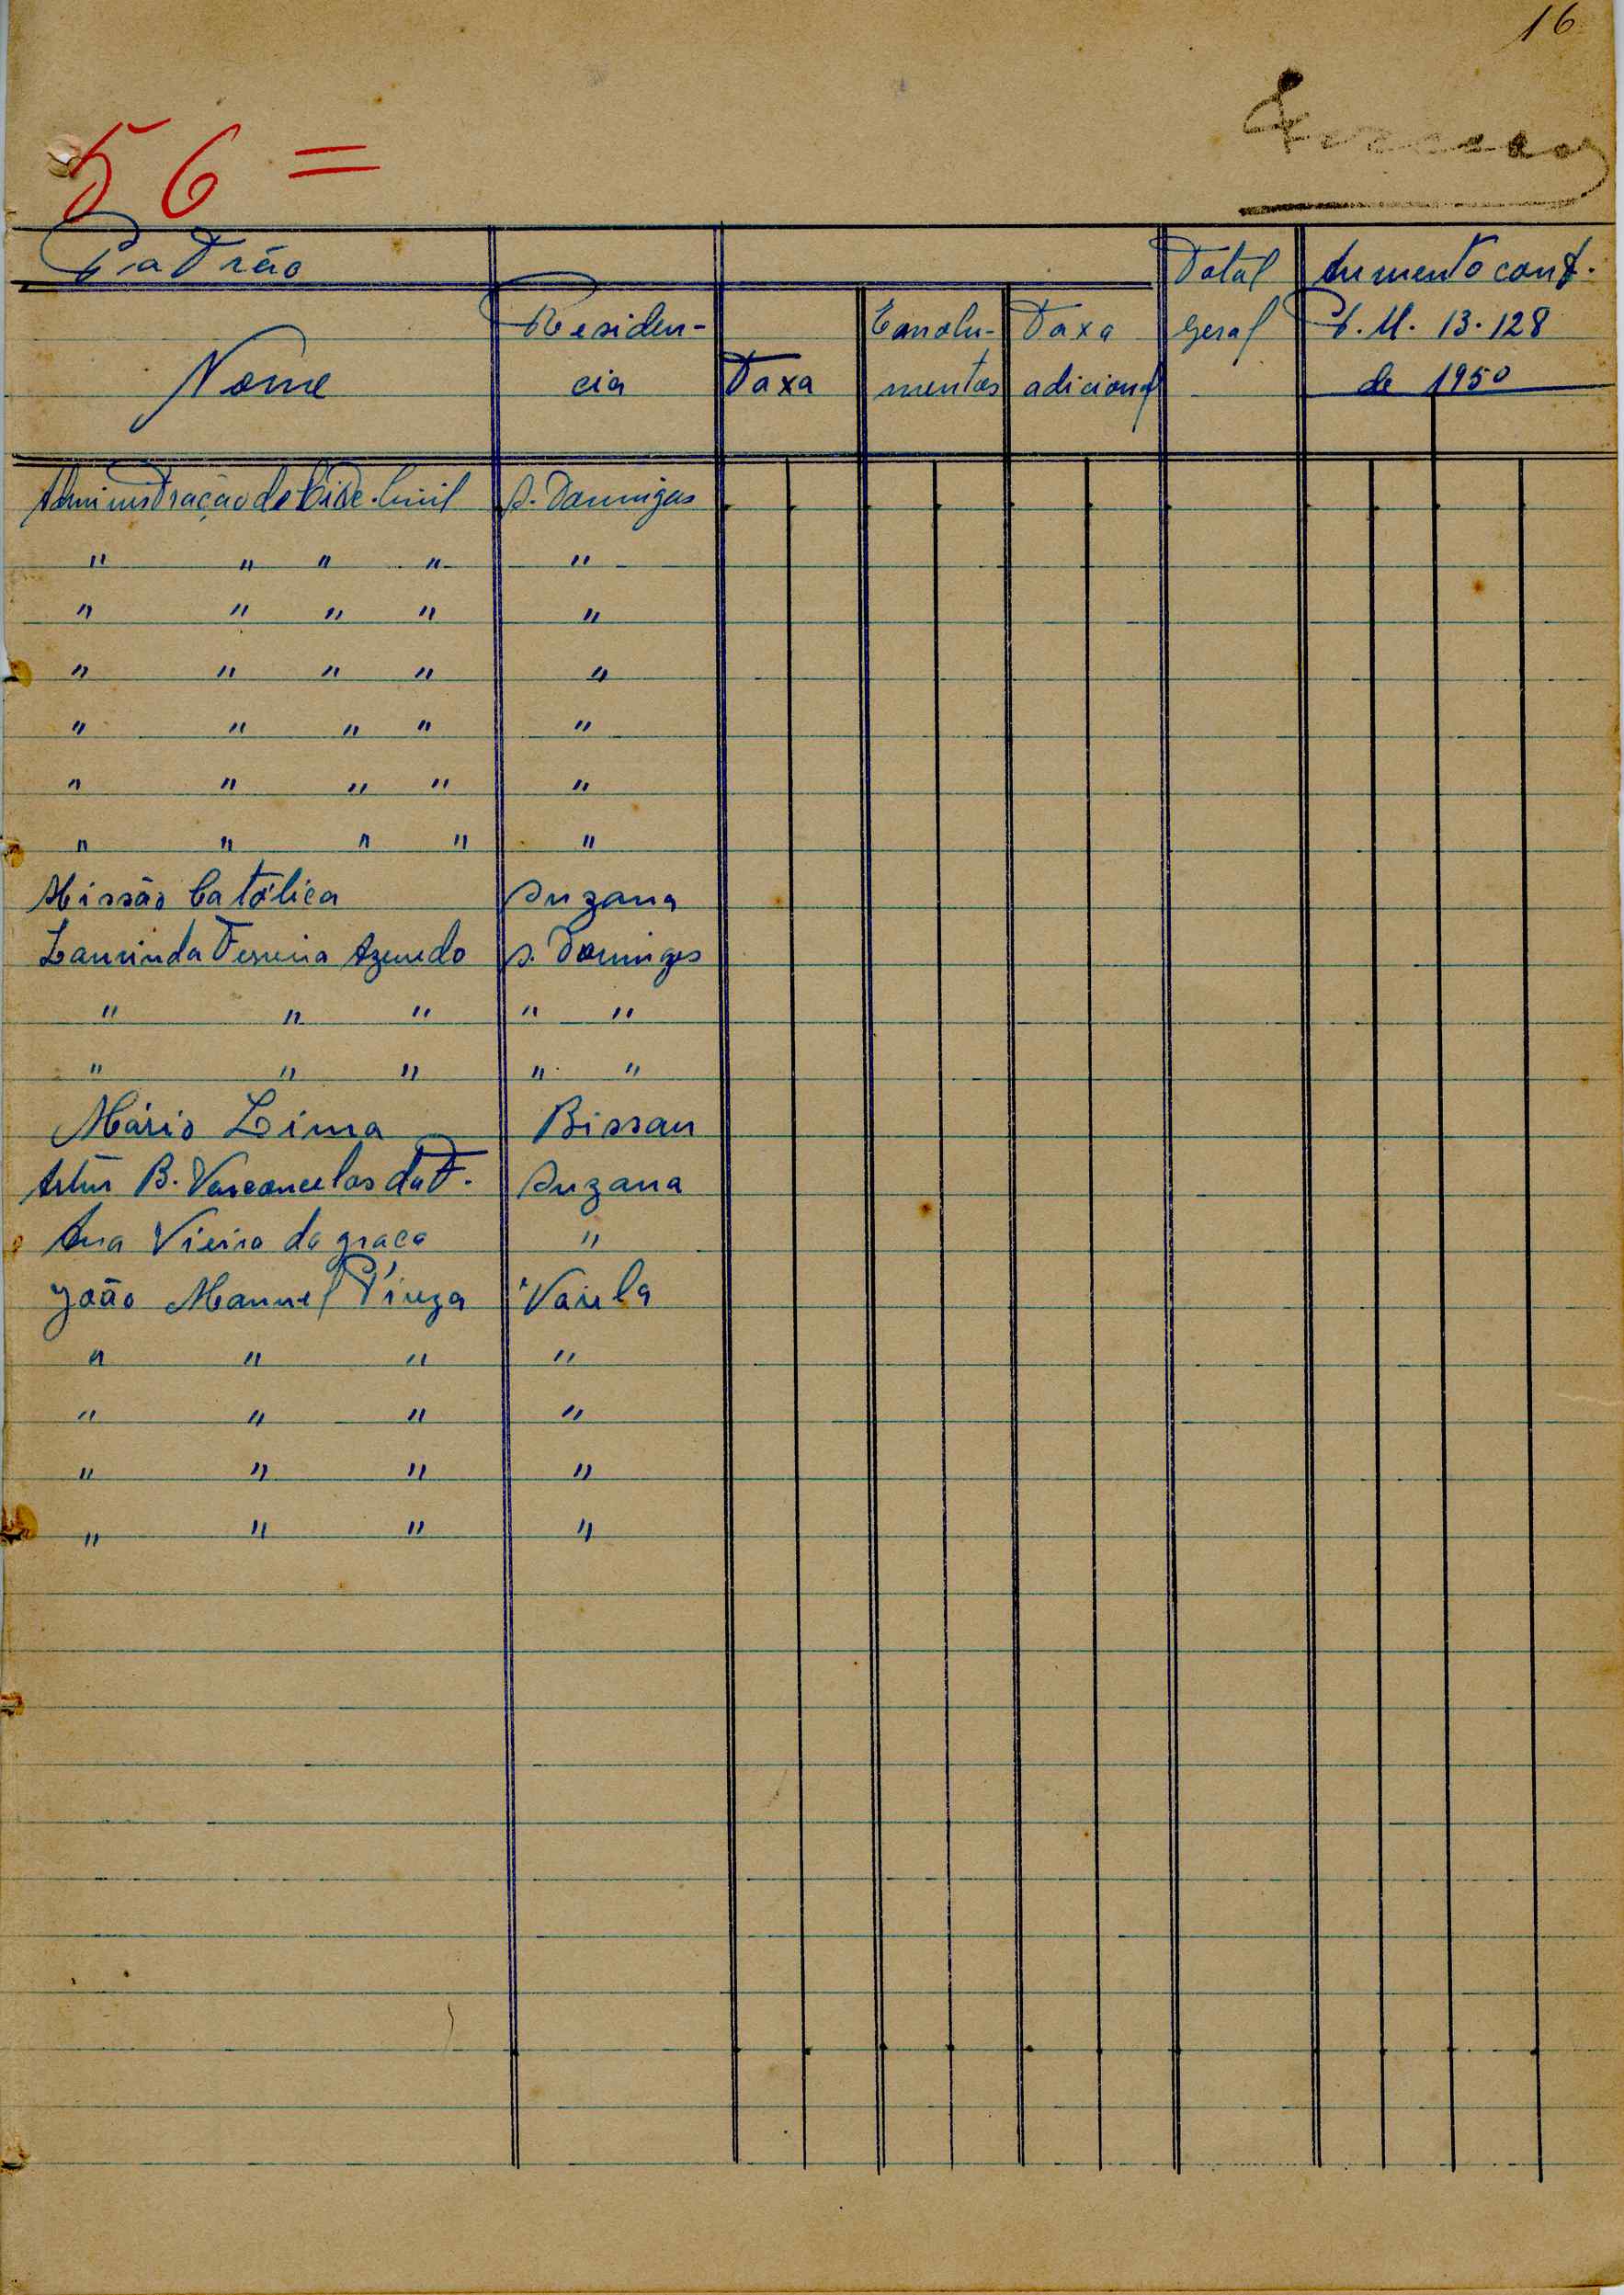 16
56=
Patrão
Total
Aumento conf.
Residen-
Emolu-
Taxa
Geral
P. M. 13.128
Nome
cia
Taxa
mentos
adicional
de 1950
Administração do Circ. Civil S. Domingos
" " " " "
" " " " "
" " " " "
" " " " "
" " " " "
" " " " "
Missão Católica Suzana
Laurinda Ferreira Azevedo S. Domingos
" " " " "
" " " " "
Mário Lima Bissau
Artur B. Vasconcelos da F. Suzana
Ana Vieira da graça "
João Manuel Varela
" " " "
" " " "
" " " "
" " " "